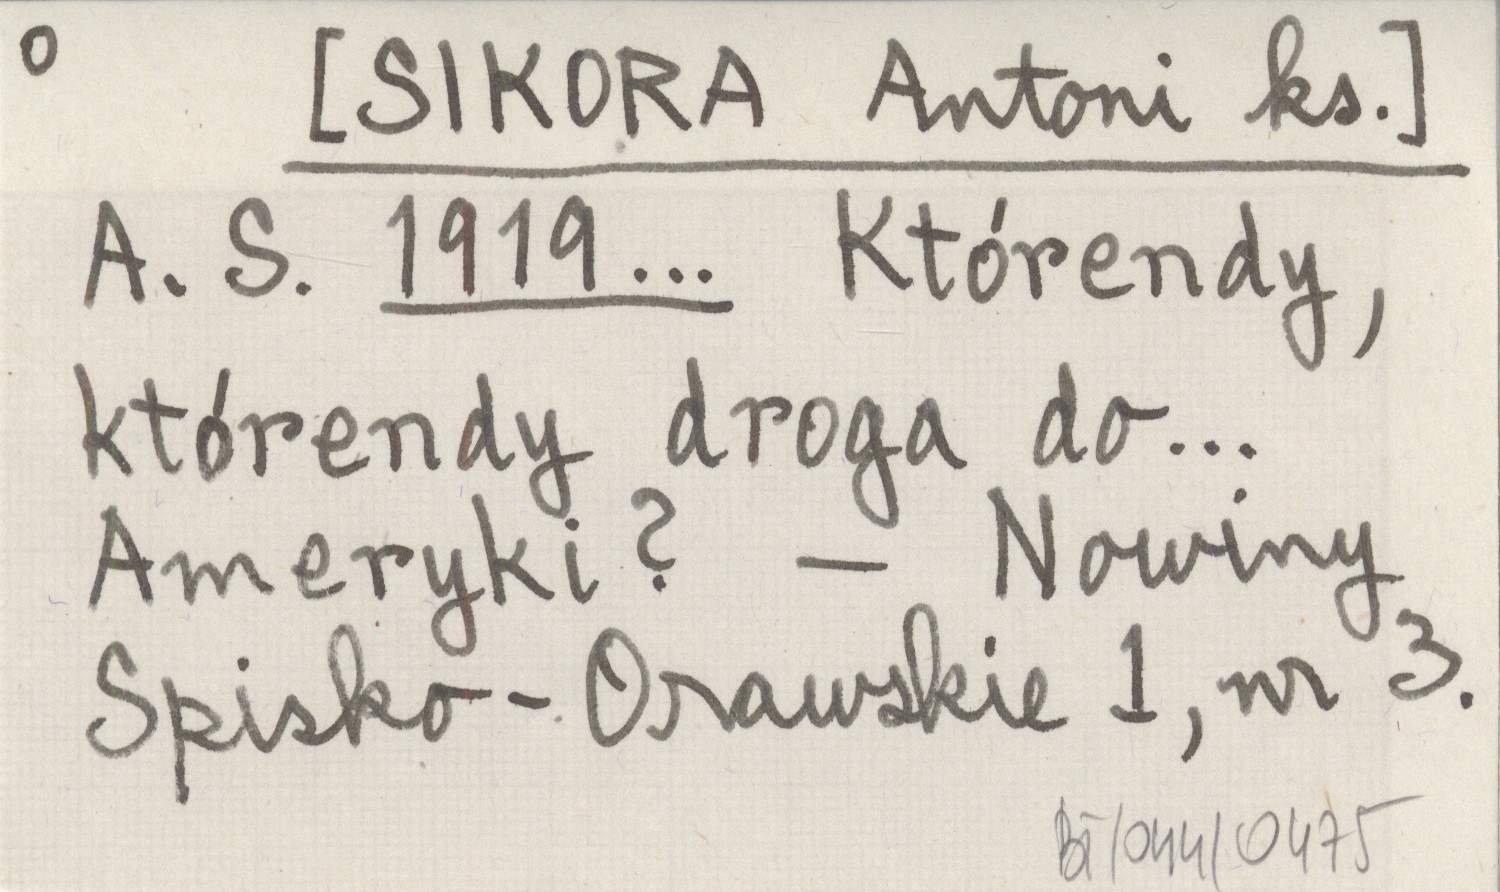 o [SIKORA Antoni ks.]
A. S. 1919... Którendy,
którendy droga do...
Ameryki? — Nowiny
Spisko-Orawskie 1, nr 3.
BI/044/0475